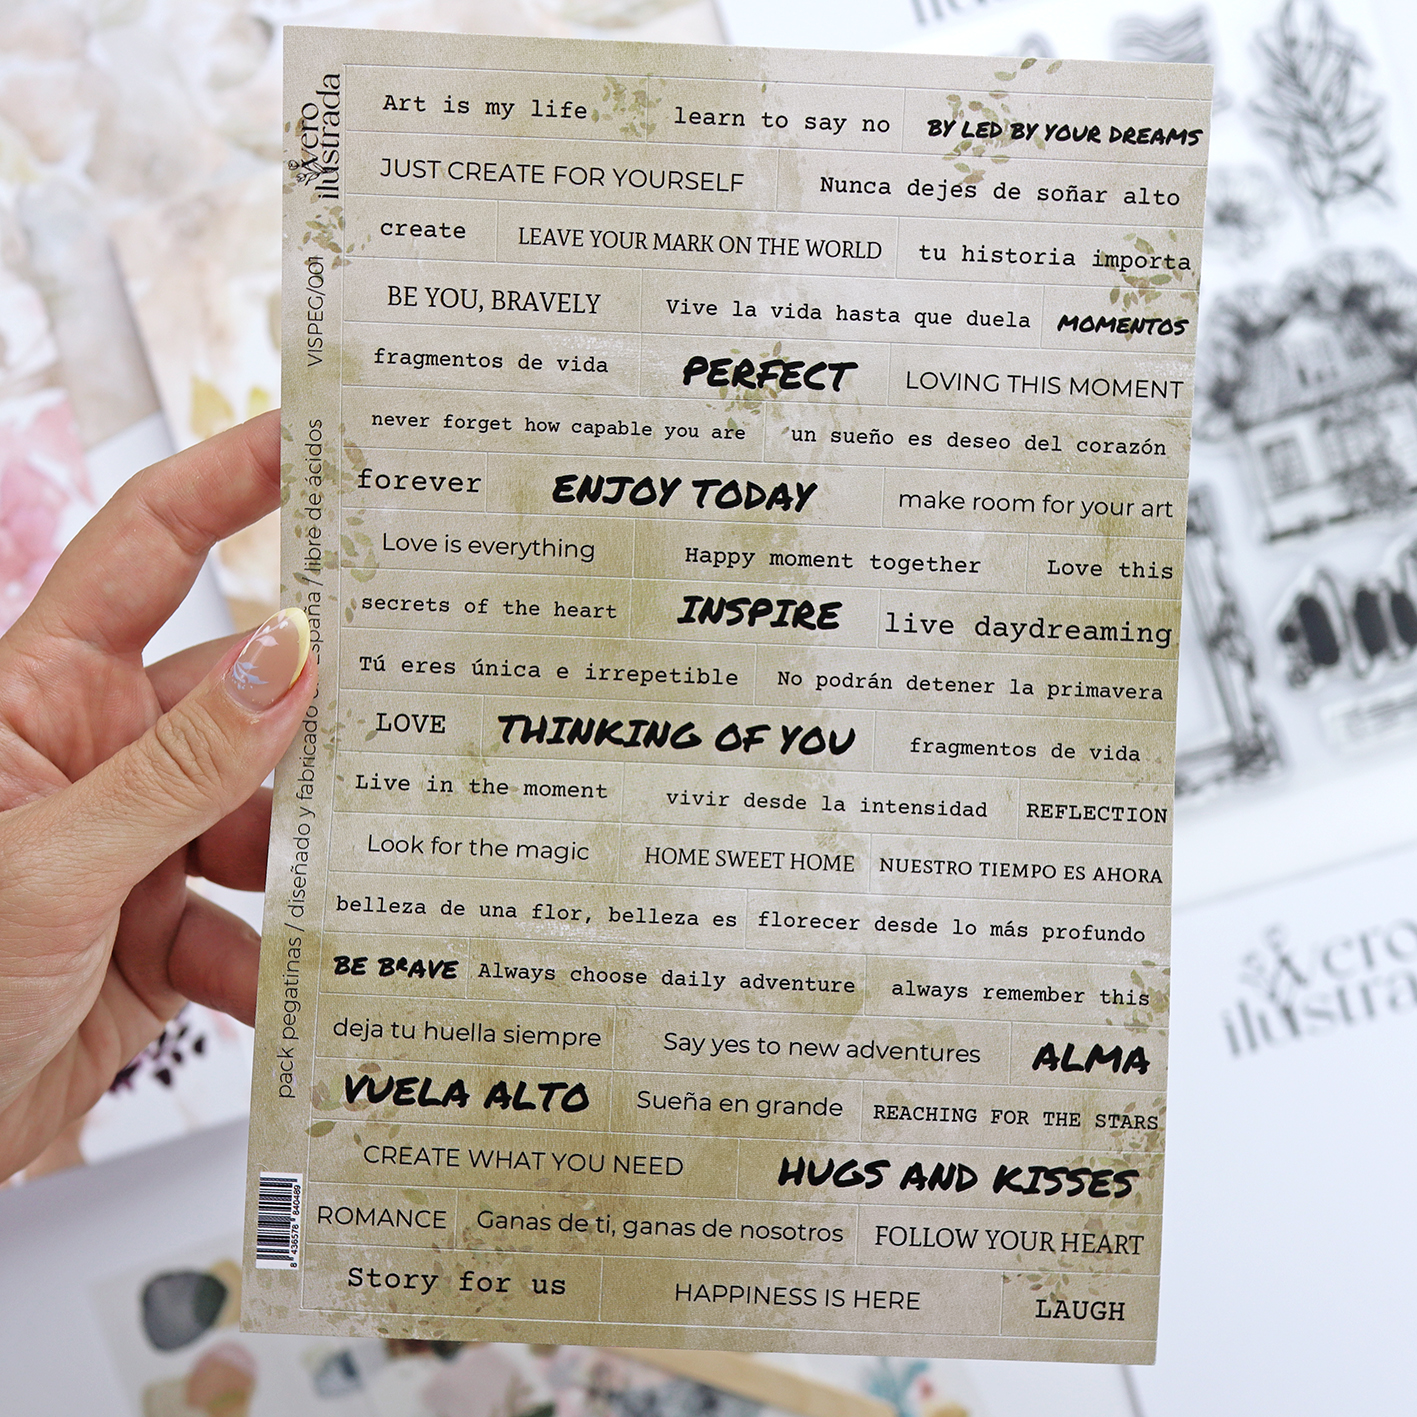 vero
ilustrada
VISPEG/001
pack pegatinas / diseñado y fabricado España / libre de ácidos
8 436578 840489
Art is my life
learn to say no
BY LED BY YOUR DREAMS
JUST CREATE FOR YOURSELF
Nunca dejes de soñar alto
create
LEAVE YOUR MARK ON THE WORLD
tu historia importa
BE YOU, BRAVELY
Vive la vida hasta que duela
MOMENTOS
fragmentos de vida
PERFECT
LOVING THIS MOMENT
never forget how capable you are
un sueño es deseo del corazón
forever
ENJOY TODAY
make room for your art
Love is everything
Happy moment together
Love this
secrets of the heart
INSPIRE
live daydreaming
Tú eres única e irrepetible
No podrán detener la primavera
LOVE
THINKING OF YOU
fragmentos de vida
Live in the moment
vivir desde la intensidad
REFLECTION
Look for the magic
HOME SWEET HOME
NUESTRO TIEMPO ES AHORA
belleza de una flor, belleza es
florecer desde lo más profundo
BE BRAVE
Always choose daily adventure
always remember this
deja tu huella siempre
Say yes to new adventures
ALMA
VUELA ALTO
Sueña en grande
REACHING FOR THE STARS
CREATE WHAT YOU NEED
HUGS AND KISSES
ROMANCE
Ganas de ti, ganas de nosotros
FOLLOW YOUR HEART
Story for us
HAPPINESS IS HERE
LAUGH